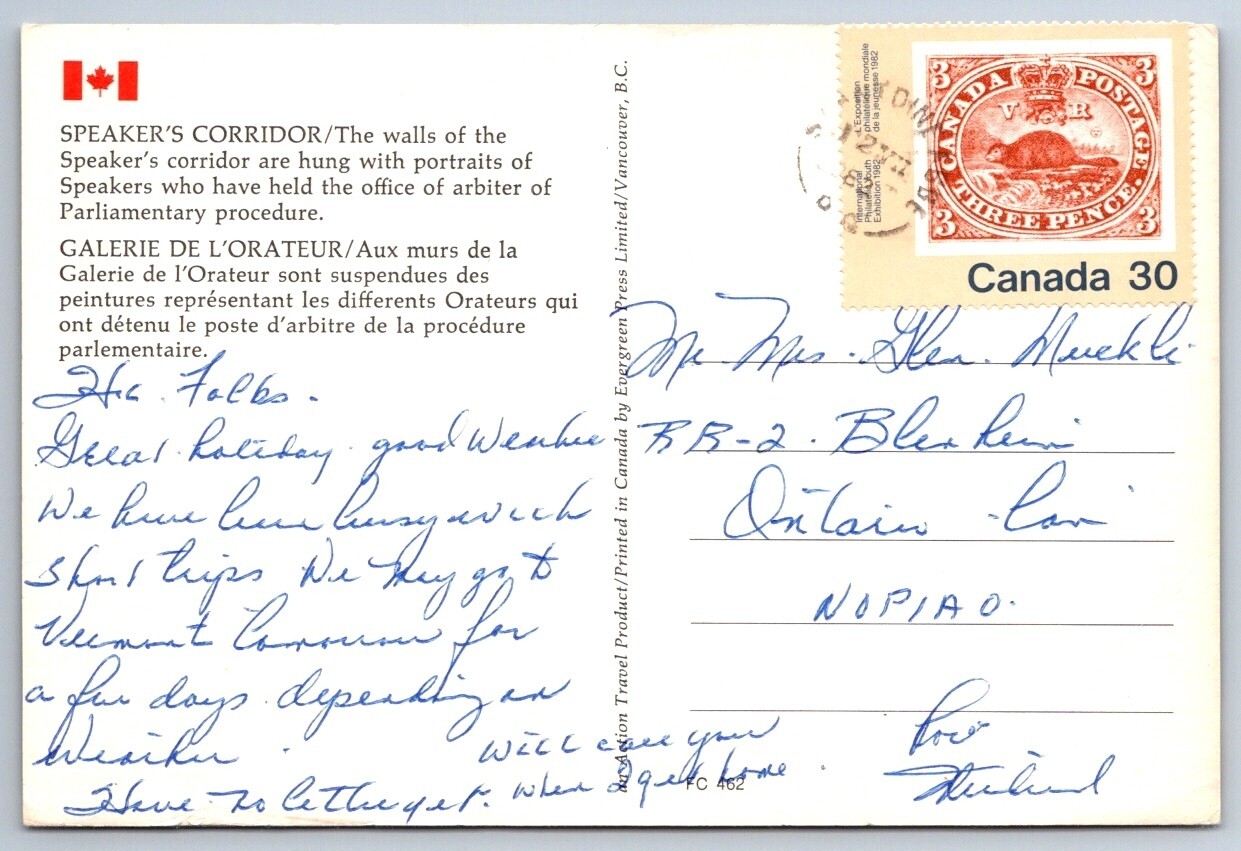 SPEAKER'S CORRIDOR/The walls of the
Speaker's corridor are hung with portraits of
Speakers who have held the office of arbiter of
Parliamentary procedure.
GALERIE DE L'ORATEUR/Aux murs de la
Galerie de l'Orateur sont suspendues des
peintures représentant les differents Orateurs qui
ont détenu le poste d'arbitre de la procédure
parlementaire.
Folks.
Great holiday. good Weather
We have been busy with
short trips We may go to
Vermont Tomorrow for
a few days depending on
Weather.
Have no letter yet.
Will call you
when I get home.
an Action Travel Product/Printed in Canada by Evergreen Press Limited/Vancouver, B.C.
FC 462
International
Philatelic Youth
Exhibition 1982
L'Exposition
philatélique mondiale
de la jeunesse 1982
CANADA POSTAGE
3 3
V R
THREE PENCE
3 3
Canada 30
Mr Mrs. Glen.
RR-2. Blenheim
Ontario - Can
NOP1AO.
Love